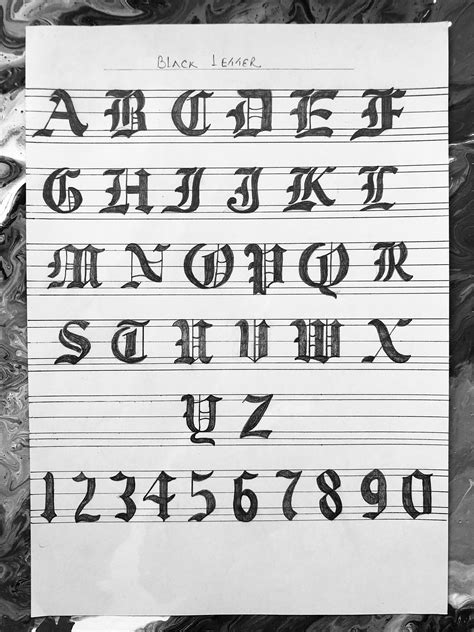 BLACK LETTER
A B C D E F
G H I J K L
M N O P Q R
S T U V W X
Y Z
1 2 3 4 5 6 7 8 9 0